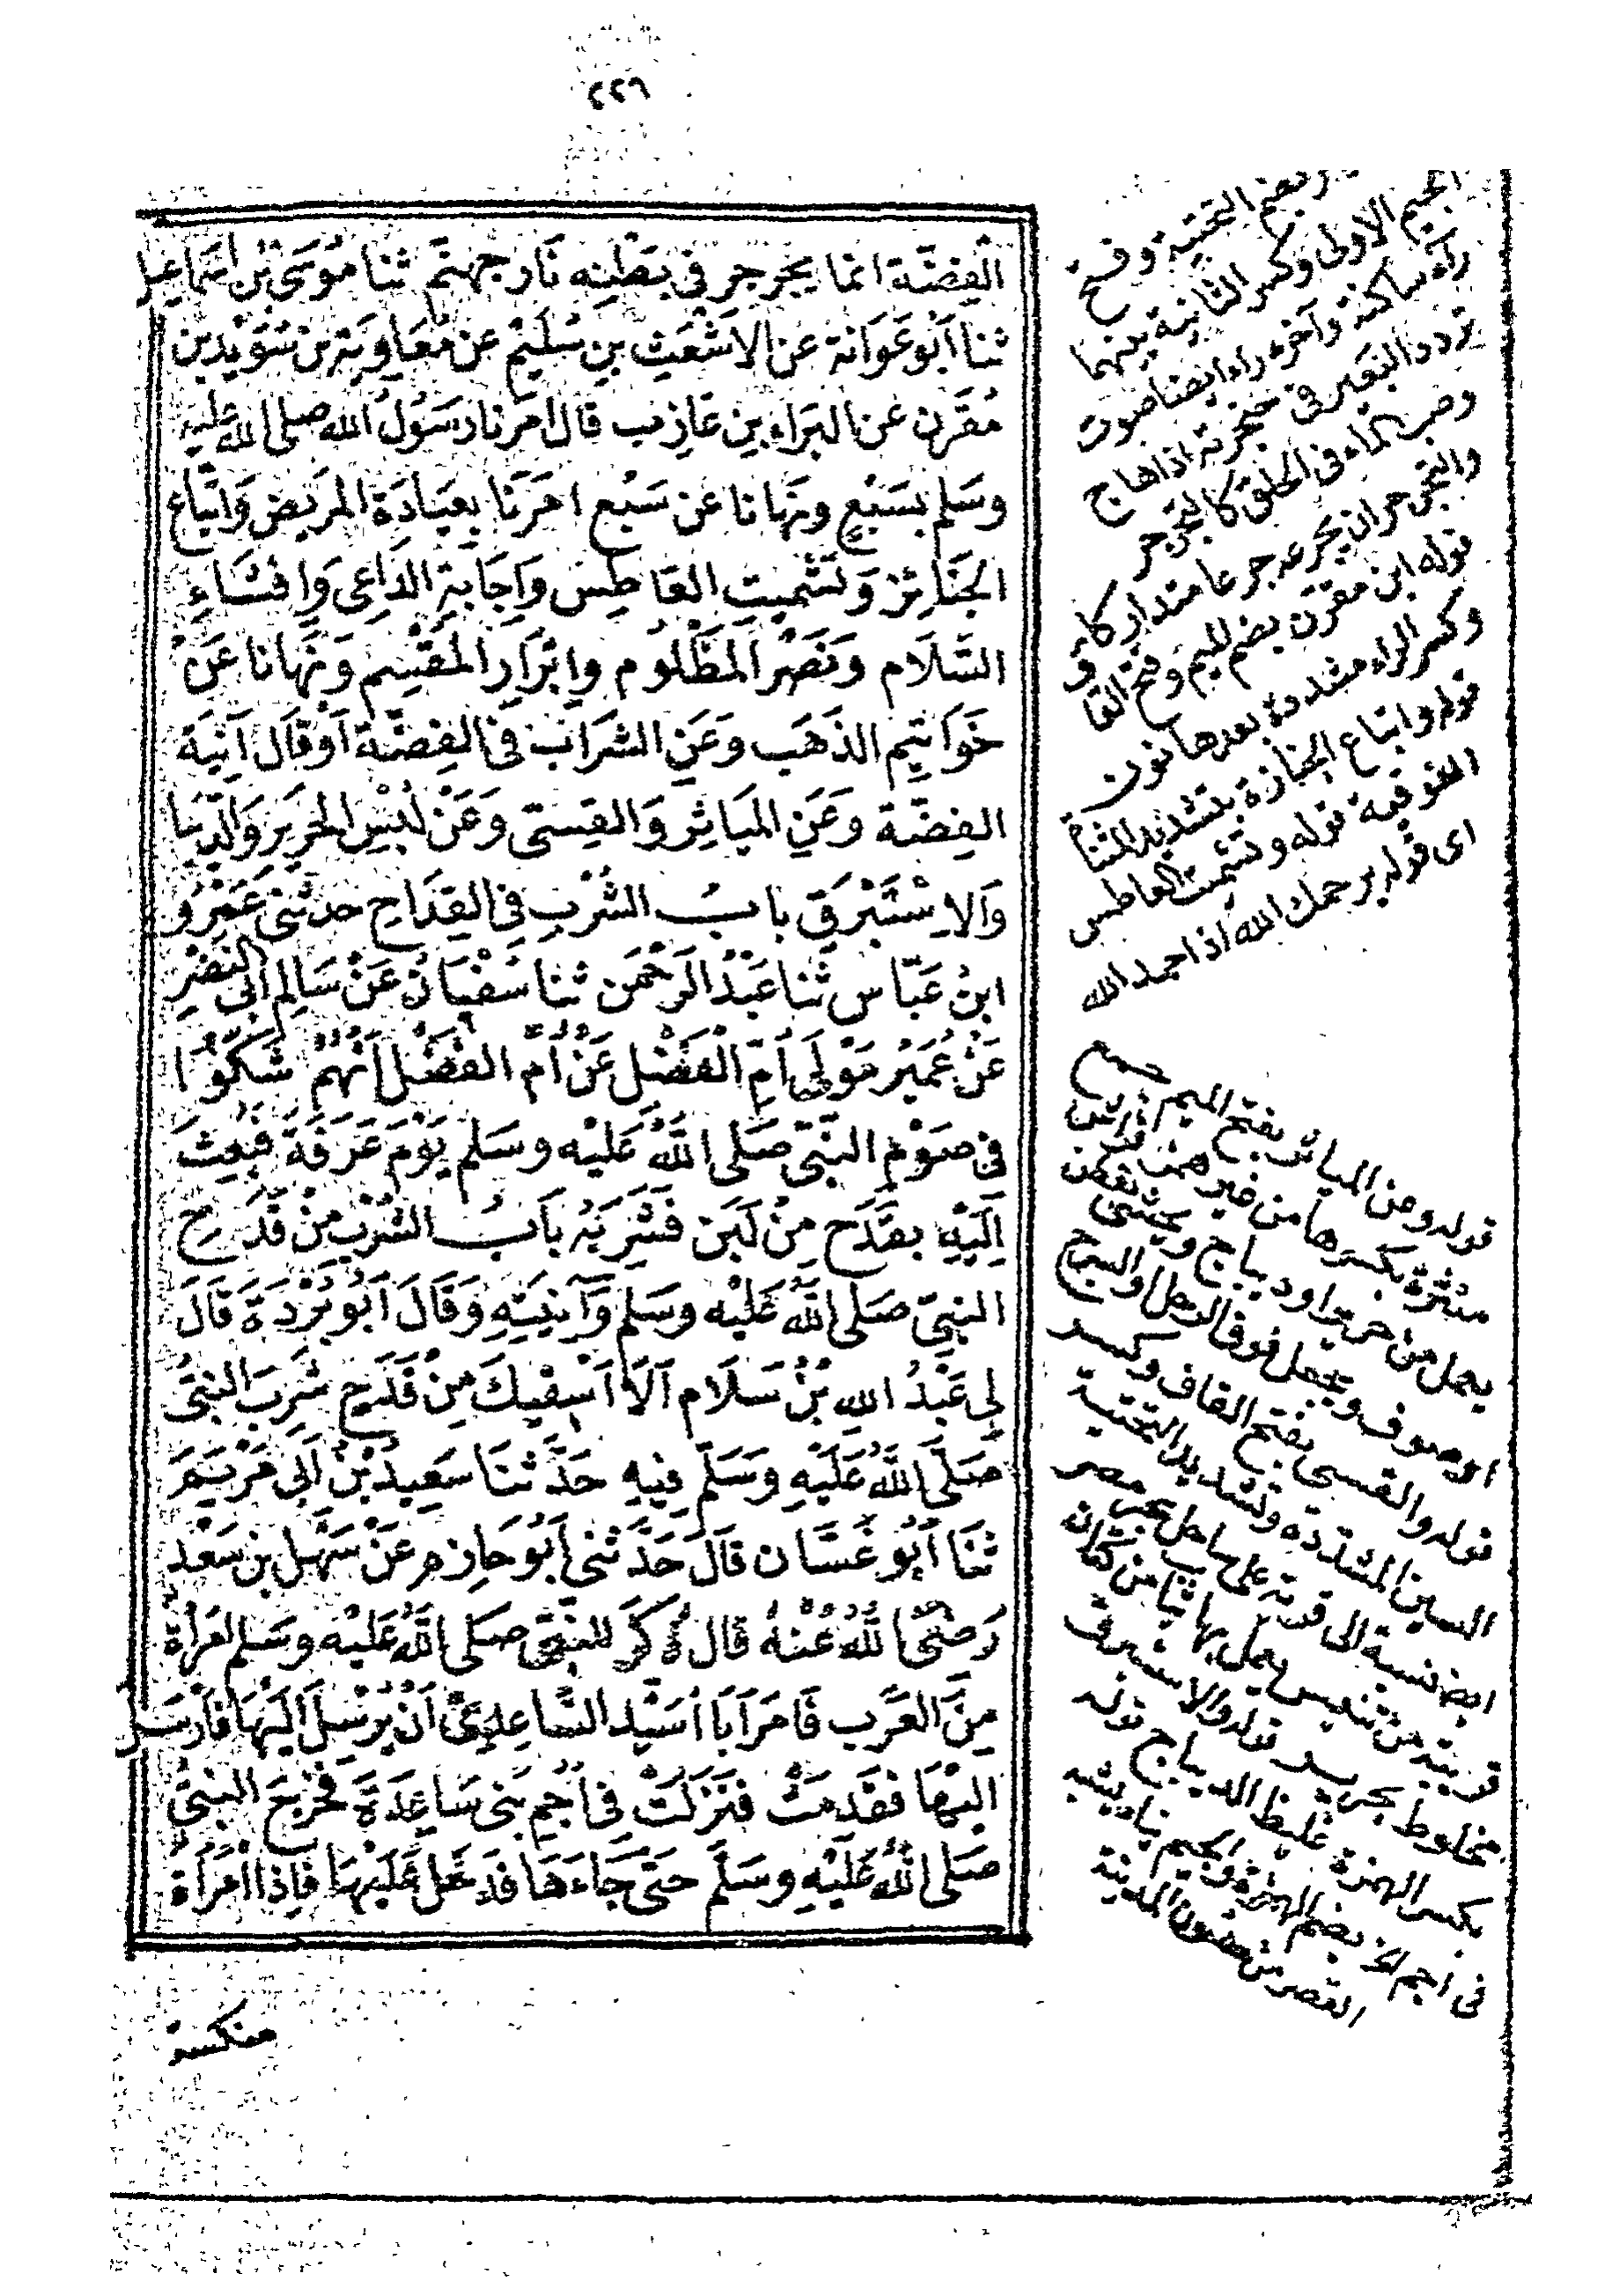 ٢٢٦
الْفِضَّة انما يجرجر فى بَطْنِه نَارجهنَّم ثنا مُوسَى بْن اسماعيل
ثنا اَبُو عَوَانة عن الاَشْعَثِ بنِ سُلَيْمٍ عن مُعَاوِيَة بن سُوَيْد بن
مُقَرن عن البَرَاءِ بن عَازِب قال امَرنا رَسُولُ الله صلى الله عليه
وسَلم بِسَبْعٍ ونهَانا عن سَبْع امَرَنَا بعِيَادَة المرَيض وَاتّبَاع
الجنَائِز وَتشْميتِ العَاطِس وَاِجَابَةِ الدَاعِى وَاِفشَاءِ
السَّلَام ونَصْر المَظْلُوم واِبْرَارِ المقْسِم وَنهَانا عَنْ
خَوَاتِيم الذَهَب وَعَنِ الشرَاب فى الفِضَّة اَوقَال آنِيَة
الفِضَّة وعَنِ المَيَاثِر وَالقِسىّ وَعَنْ لبْسِ الحَرِير وَالدّيبَا
وَالاِسْتَبْرَقِ بابُ الشُرْبِ فى القِدَاح حدثنى عَمْرُو
ابنُ عَبّاس ثَنا عَبْدُ الرَحْمَن ثنا سُفْيَانُ عَنْ سَالِمِ اَبى النَضْرِ
عَنْ عُمَيْر مَوْلَى اُمّ الْفَضْل عَنْ اُمّ الفَضْل اَنَّهُمْ شَكَوُّا
فى صَوْمِ النَبىّ صَلى اللهُ عَلَيْه وسَلم يَوْمَ عَرَفَة فبُعِثَ
اِلَيْهِ بقَدَح مِنْ لَبَن فشَرِبَهُ بَابُ الشُرْب مِنْ قَدَحِ
النبىّ صَلى اللهُ عَلَيْه وسَلم وَآنِيَتِهِ وَقَالَ اَبُو بُرْدَة قَالَ
لِى عَبْدُ اللهِ بْنُ سَلَام اَلَا اَسْقِيكَ مِنْ قَدَحٍ شَرِبَ النبىُّ
صَلَّى اللهُ عَلَيْهِ وَسَلَّم فِيهِ حَدَّثنَا سَعِيدُ بْنُ اَبى مَرْيَمَ
ثنَا اَبُو غَسَّان قَالَ حَدَّثنى اَبُو حَازِم عَنْ سَهْل بن سَعْد
رَضىَ اللهُ عَنْهُ قَالَ ذُكِرَ للنبىّ صَلى اللهُ عَلَيْه وسَلم امرَأة
مِنَ العَرَب فَامَرَ اَبَا اُسَيْد السَّاعِدِىّ اَنْ يُرْسِلَ اِلَيْهَا فَارْسَل
اليْهَا فقَدمَتْ فنَزَلَتْ فى اُجُمِ بَنى سَاعِدَة فخَرَجَ النبىُّ
صَلى اللهُ عَلَيْهِ وسَلَّم حَتَى جَاءَهَا فدَخَل عَلَيْهَا فَاِذَا امْرَأة
منكسة
بضم التحتية وفتح
الجيم الاولى وكسر الثانية بينهما
راء ساكنة وآخره راء ايضا صوت
تردد البعير فى حنجرته اذا هاج
وصب الماء فى الحلق كالتجرجر
والتجرجر ان يجرعه جرعا متداركا ق
قوله ابن مقرن بضم الميم وفتح القا
وكسر الراء مشددة بعدها نون
قوله واتباع الجنازة بتشديد المثناة
الفوقية قوله وتشميت العاطس
اى قوله يرحمك الله اذا حمد الله
قوله وعن المياثر بفتح الميم جمع
مئثرة بكسرها من غير همز
يعمل من حرير او ديباج ويحشى
او صوف ويجعل فوق الرحل او السرج
قوله والقسى بفتح القاف وكسر
السين المشددة وتشديد التحتية
نسبة الى قرية على ساحل بحر مصر
قريبة من تنيس يعمل بها ثياب من كتان
مخلوط بحرير قوله والاستبرق
بكسر الهمزة غليظ الديباج قوله
فى اجم الخ بضم الهمزة والجيم بناء يشبه
القصر من حصون المدينة